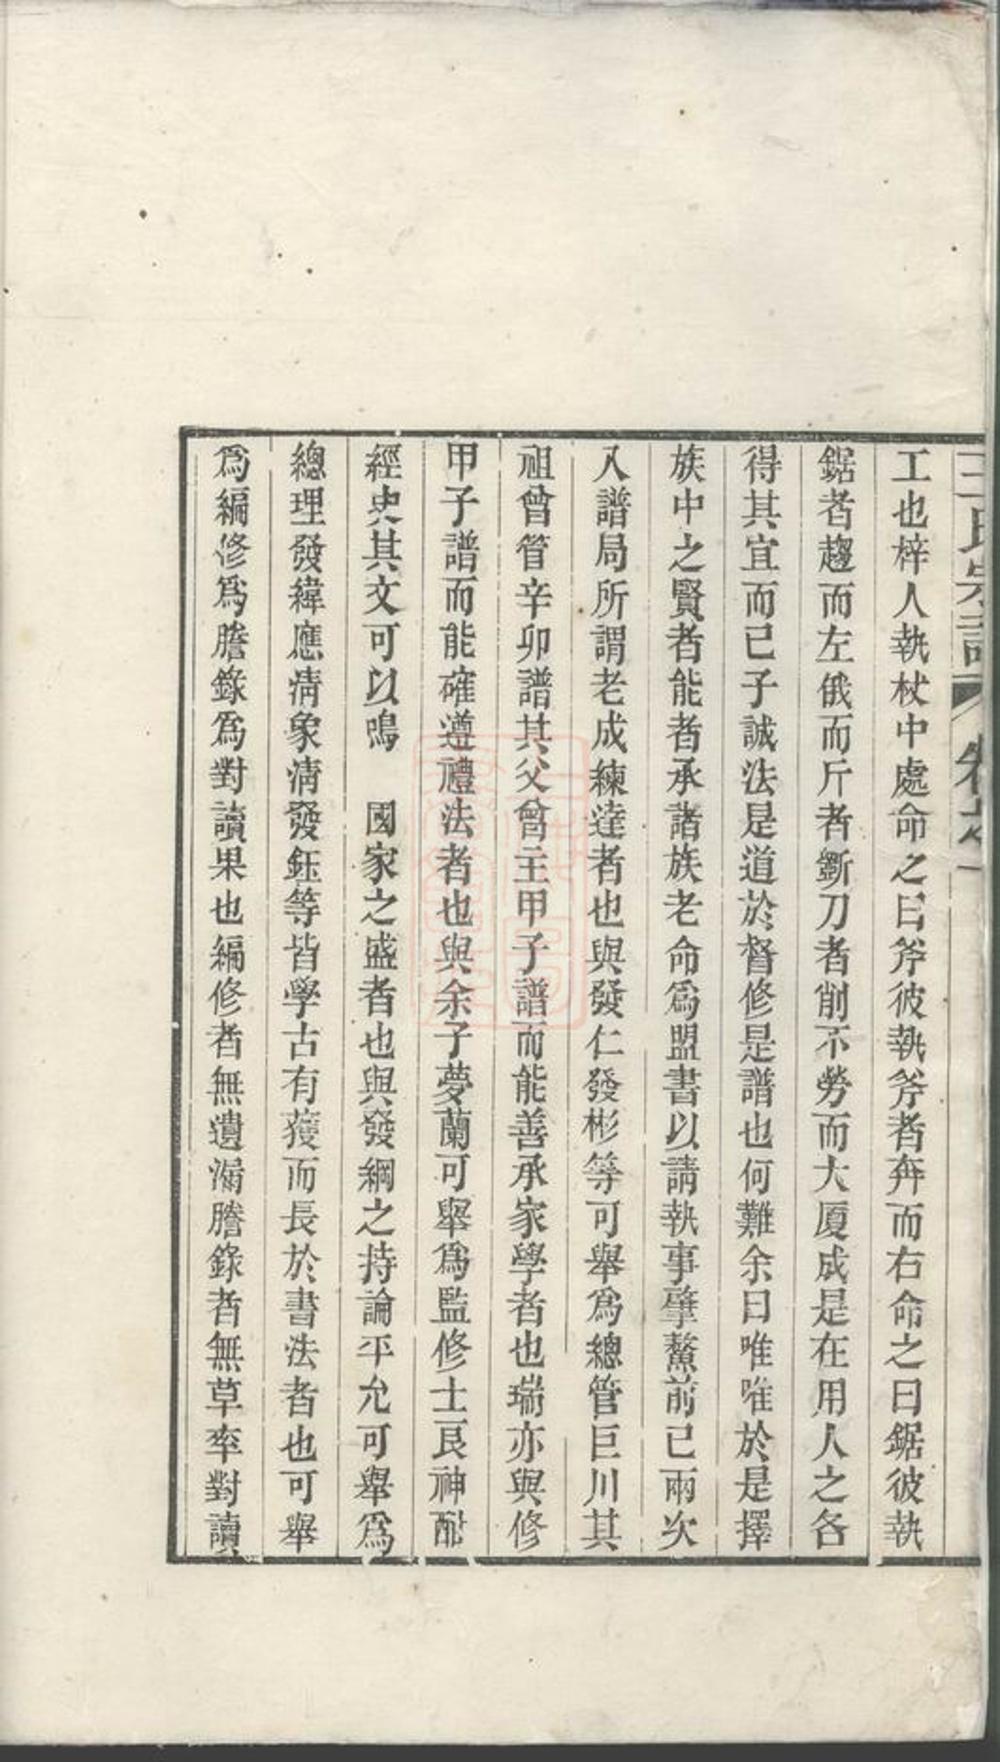 王氏宗譜 卷之一
工也梓人執杖中處命之曰斧彼執斧者奔而右命之曰鋸彼執
鋸者趨而左俄而斤者斲刀者削不勞而大厦成是在用人之各
得其宜而已子誠法是道於督修是譜也何難余曰唯唯於是擇
族中之賢者能者承諸族老命爲盟書以請執事肇鰲前已兩次
入譜局所謂老成練達者也與發仁發彬等可舉爲總管巨川其
祖曾管辛卯譜其父曾主甲子譜而能善承家學者也瑞亦與修
甲子譜而能確遵禮法者也與余子夢蘭可舉爲監修士良神酣
經史其文可以鳴　國家之盛者也與發綱之持論平允可舉爲
總理發緯應淸象淸發鈺等皆學古有獲而長於書法者也可舉
爲編修爲謄錄爲對讀果也編修者無遺漏謄錄者無草率對讀